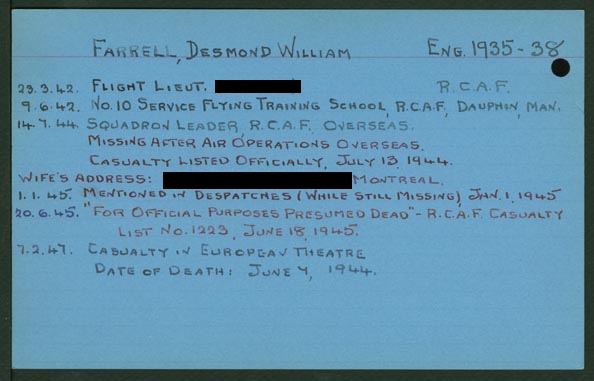 FARRELL, DESMOND WILLIAM ENG. 1935-38
23.3.42. FLIGHT LIEUT. R.C.A.F.
9.6.42. NO.10 SERVICE FLYING TRAINING SCHOOL, R.C.A.F., DAUPHIN, MAN.
14.7.44. SQUADRON LEADER, R.C.A.F. OVERSEAS.
MISSING AFTER AIR OPERATIONS OVERSEAS.
CASUALTY LISTED OFFICIALLY, JULY 13, 1944.
WIFE'S ADDRESS: MONTREAL.
1.1.45. MENTIONED IN DESPATCHES (WHILE STILL MISSING) JAN. 1, 1945
20.6.45. "FOR OFFICIAL PURPOSES PRESUMED DEAD" - R.C.A.F. CASUALTY
LIST NO. 1223, JUNE 18, 1945.
7.2.47. CASUALTY IN EUROPEAN THEATRE
DATE OF DEATH: JUNE 1944.